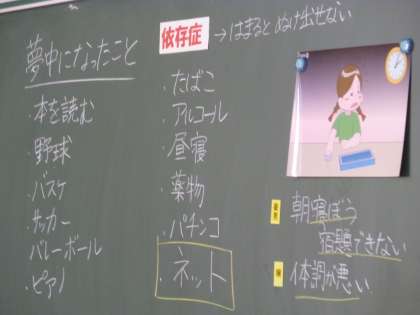 夢中になったこと
・本を読む
・野球
・バスケ
・サッカー
・バレーボール
・ピアノ
依存症 →はまるとぬけ出せない
・たばこ
・アルコール
・昼寝
・薬物
・パチンコ
・ネット
朝寝ぼう
宿題できない
体調が悪い